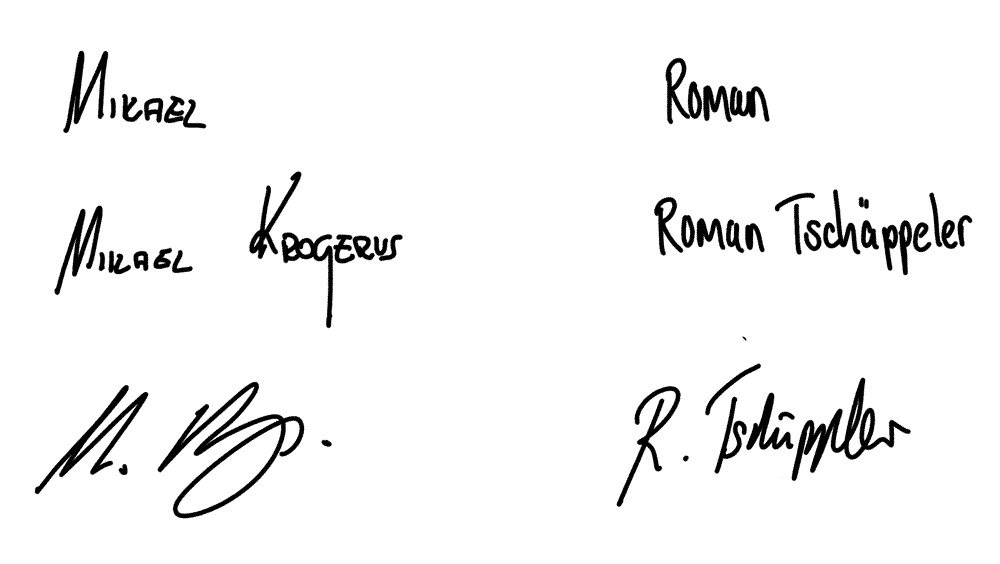 Mikael Roman
Mikael Krogerus Roman Tschäppeler
M. R. Tschäppeler